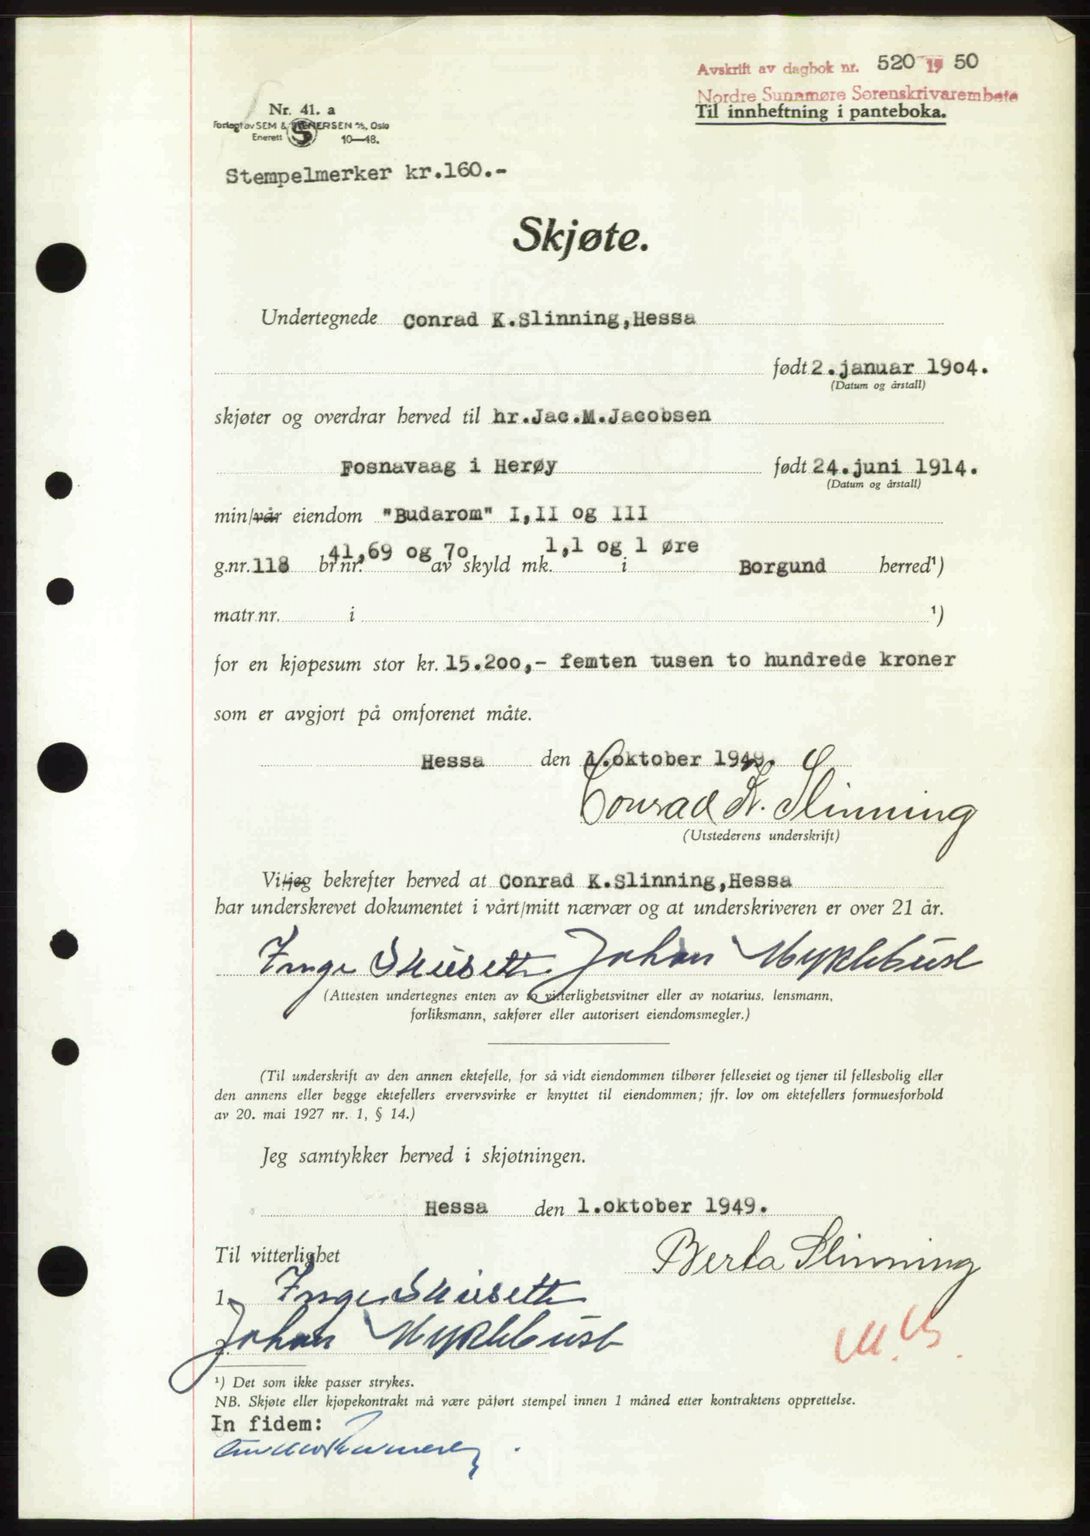 Avskrift av dagbok nr. 520 1950
Nordre Sunnmøre Sorenskrivarembete
Til innheftning i panteboka.
Nr. 41. a
Forlagt av SEM & STENERSEN A/S, Oslo
Enerett 10—48.
Stempelmerker kr.160.-
Skjøte.
Undertegnede Conrad K.Slinning,Hessa
født 2.januar 1904.
(Datum og årstall)
skjøter og overdrar herved til hr.Jac.M.Jacobsen
Fosnavaag i Herøy født 24.juni 1914.
(Datum og årstall)
min/vår eiendom "Budarom" I,II og III
g.nr. 118 br.nr. 41,69 og 70 av skyld mk. 1,1 og 1 øre i Borgund herred¹)
matr.nr. i ¹)
for en kjøpesum stor kr. 15.200,- femten tusen to hundrede kroner
som er avgjort på omforenet måte.
Hessa den 1.oktober 1949.
Conrad K. Slinning
(Utstederens underskrift)
Vi/jeg bekrefter herved at Conrad K.Slinning,Hessa
har underskrevet dokumentet i vårt/mitt nærvær og at underskriveren er over 21 år.
Inge Johan Myklebust
(Attesten undertegnes enten av to vitterlighetsvitner eller av notarius, lensmann,
forliksmann, sakfører eller autorisert eiendomsmegler.)
(Til underskrift av den annen ektefelle, for så vidt eiendommen tilhører felleseiet og tjener til fellesbolig eller
den annens eller begge ektefellers ervervsvirke er knyttet til eiendommen; jfr. lov om ektefellers formuesforhold
av 20. mai 1927 nr. 1, § 14.)
Jeg samtykker herved i skjøtningen.
Hessa den 1.oktober 1949.
Til vitterlighet Berta Slinning
1. Inge
Johan Myklebust
¹) Det som ikke passer strykes.
NB. Skjøte eller kjøpekontrakt må være påført stempel innen 1 måned etter kontraktens opprettelse.
In fidem: